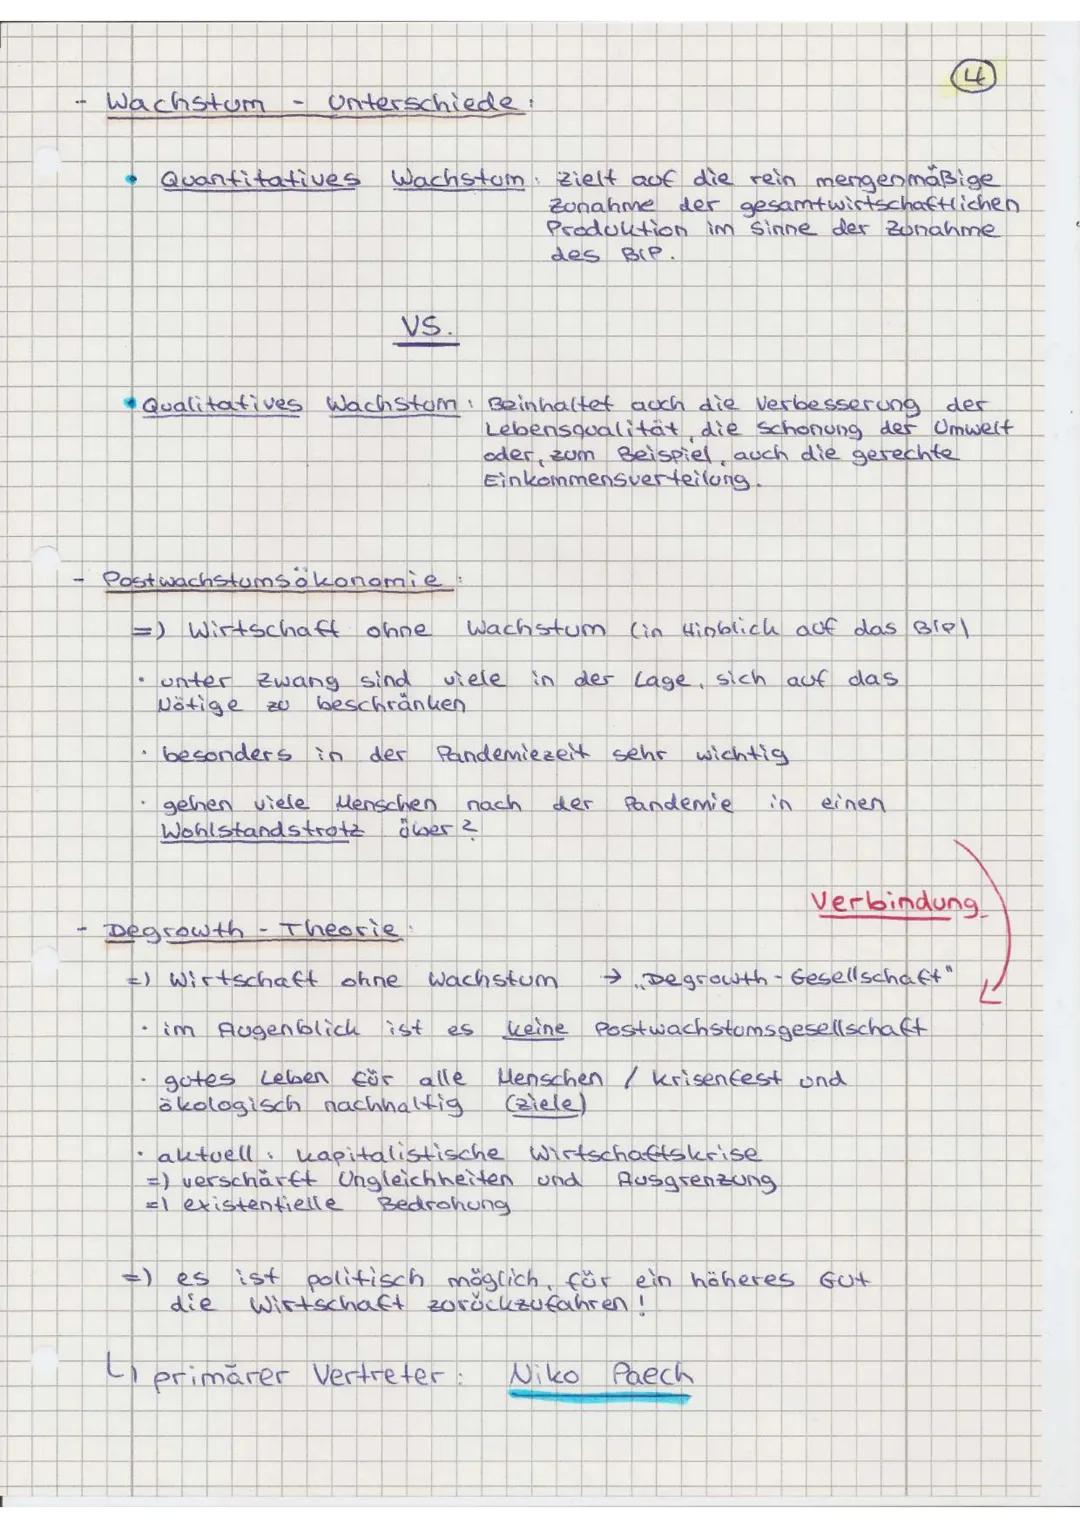 4
- Wachstum - Unterschiede:
• Quantitatives Wachstum: zielt auf die rein mengenmäßige
Zunahme der gesamtwirtschaftlichen
Produktion im Sinne der Zunahme
des BIP.
VS.
• Qualitatives Wachstum: Beinhaltet auch die Verbesserung der
Lebensqualität, die Schonung der Umwelt
oder, zum Beispiel, auch die gerechte
Einkommensverteilung.
- Postwachstumsökonomie:
=) Wirtschaft ohne Wachstum (in Hinblick auf das BIP)
· unter Zwang sind viele in der Lage, sich auf das
Nötige zu beschränken
· besonders in der Pandemiezeit sehr wichtig
· gehen viele Menschen nach der Pandemie in einen
Wohlstandstrotz über?
Verbindung
- Degrowth - Theorie:
=) Wirtschaft ohne Wachstum → „Degrowth - Gesellschaft"
· im Augenblick ist es keine Postwachstumsgesellschaft
· gutes Leben für alle Menschen / krisenfest und
ökologisch nachhaltig (Ziele)
· aktuell: kapitalistische Wirtschaftskrise
=) verschärft Ungleichheiten und Ausgrenzung
=) existentielle Bedrohung
=) es ist politisch möglich, für ein höheres Gut
die Wirtschaft zurückzufahren!
↳ primärer Vertreter: Niko Paech